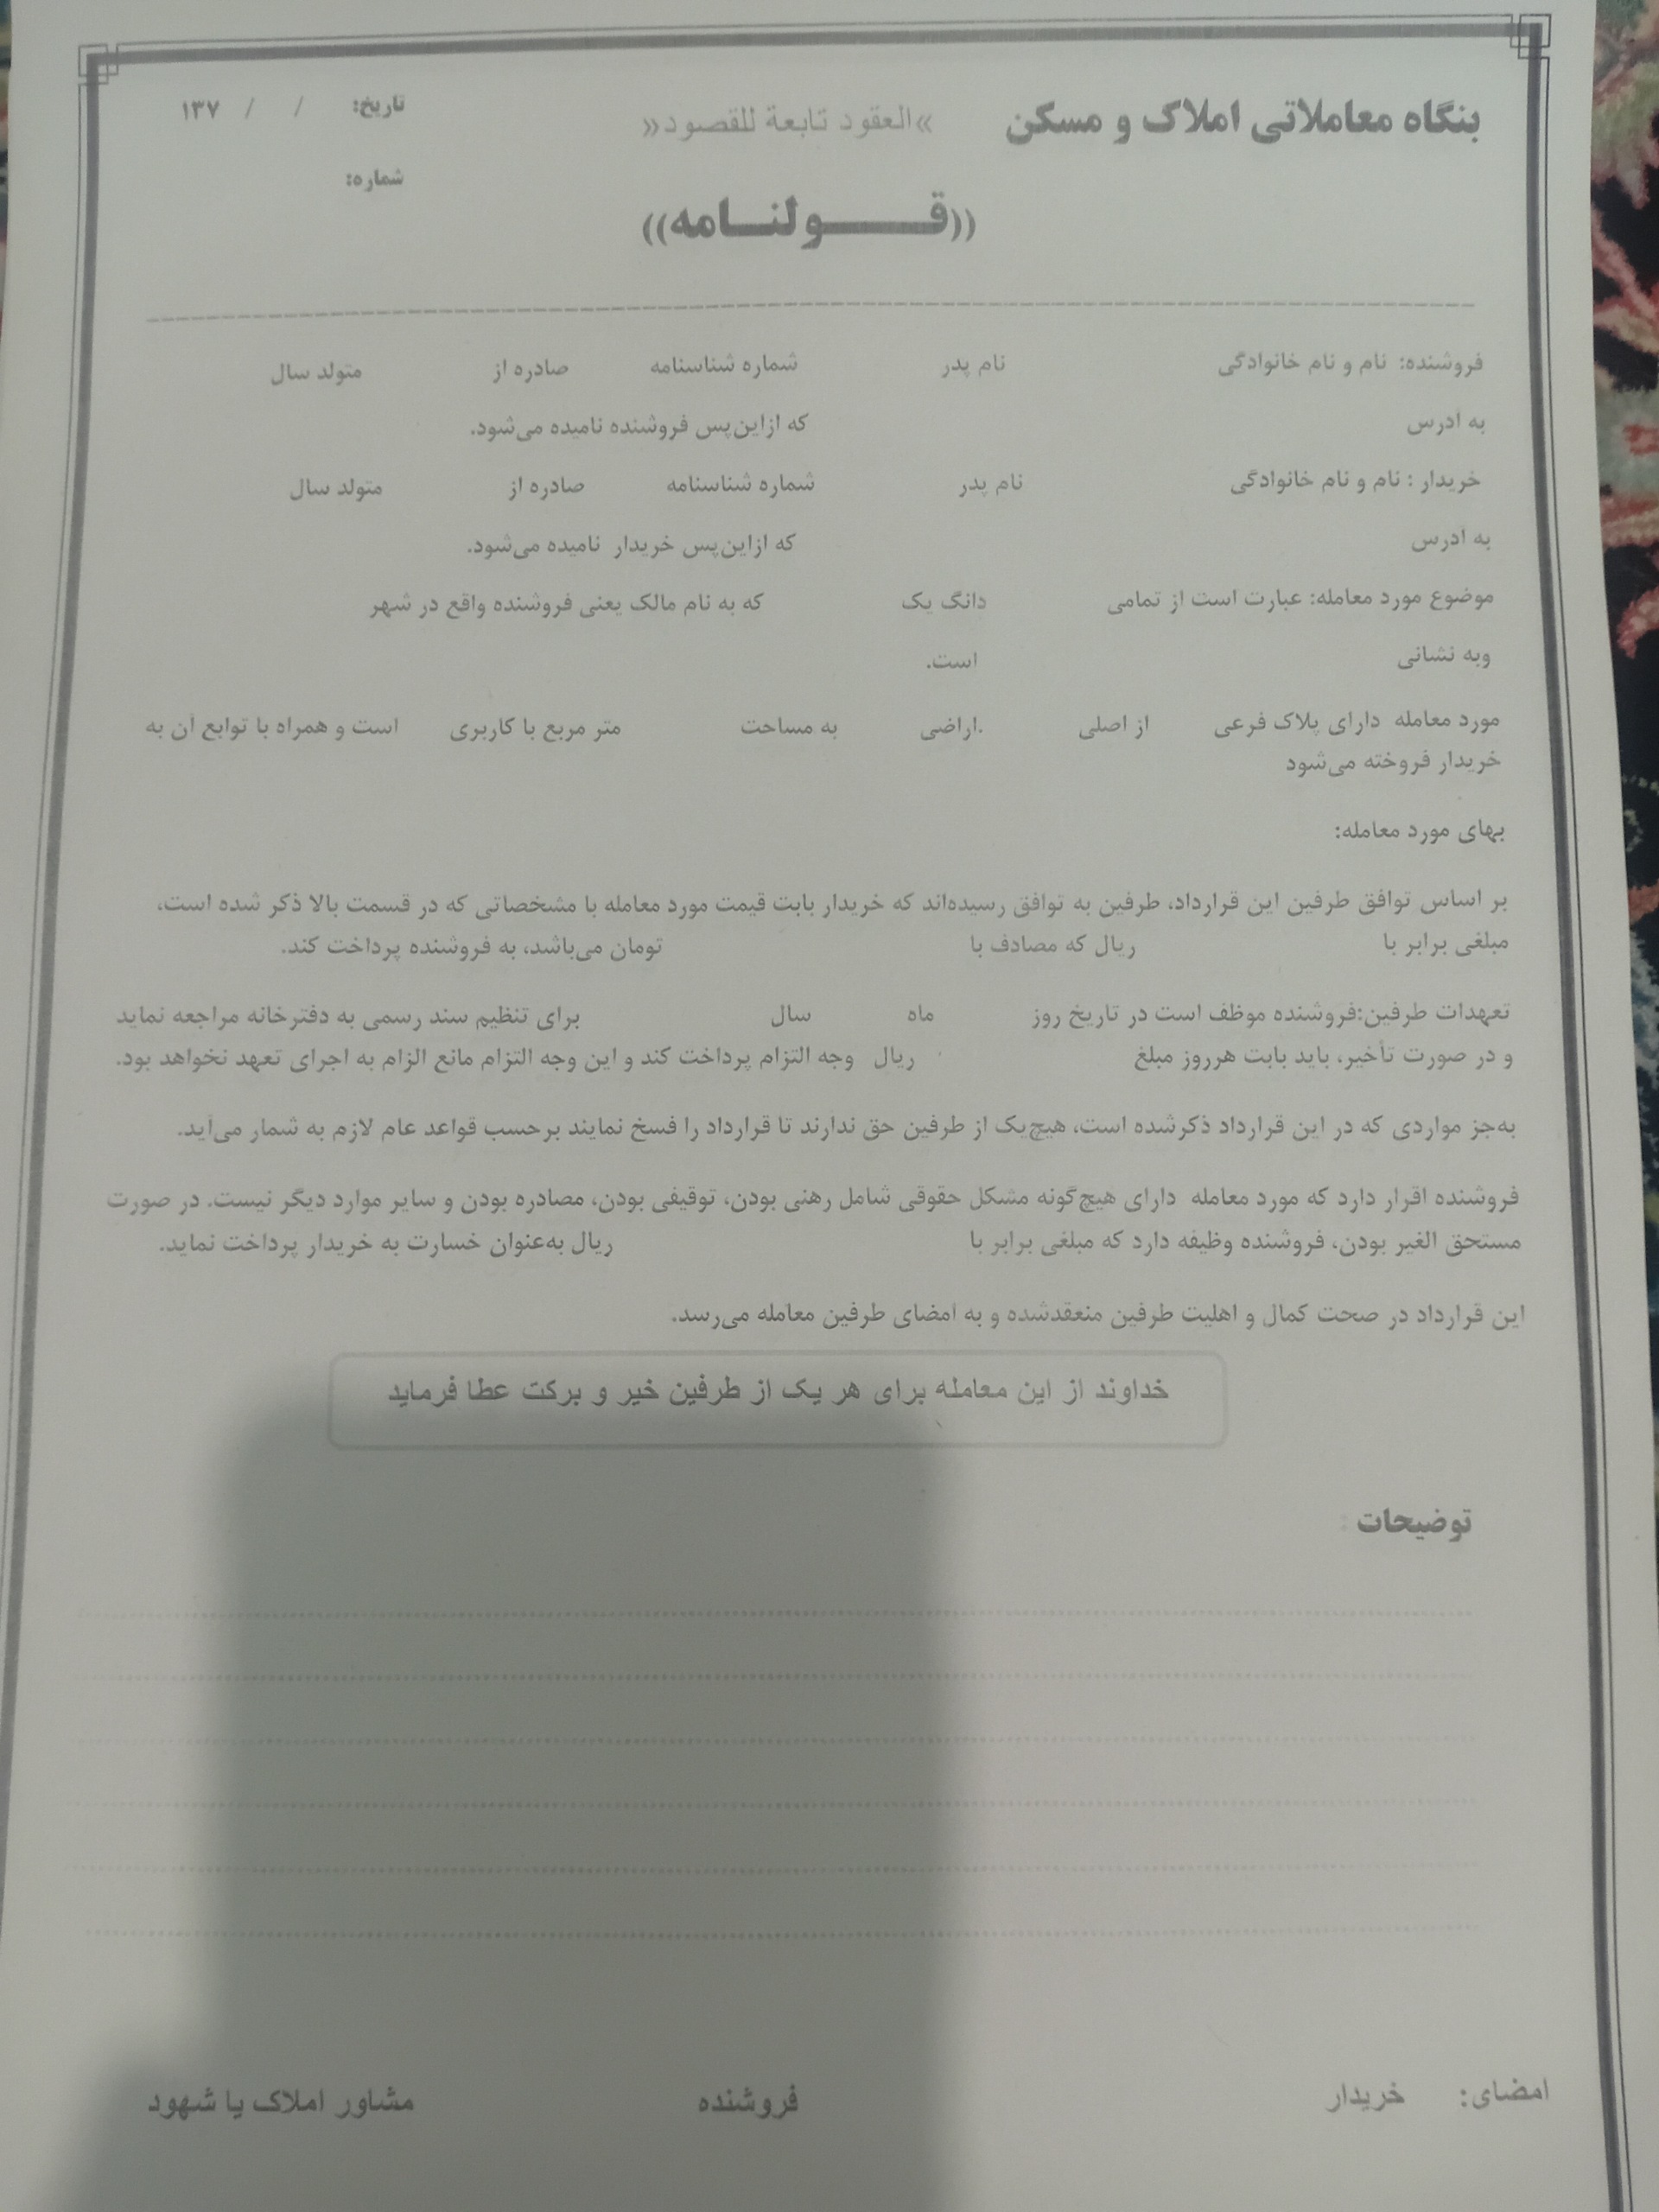 بنگاه معاملاتی املاک و مسکن
»العقود تابعة للقصود«
تاریخ: / / ۱۳۷
شماره:
((قـــولنـامه))
فروشنده: نام و نام خانوادگی نام پدر شماره شناسنامه صادره از متولد سال
به آدرس که ازاین‌پس فروشنده نامیده می‌شود.
خریدار : نام و نام خانوادگی نام پدر شماره شناسنامه صادره از متولد سال
به آدرس که ازاین‌پس خریدار نامیده می‌شود.
موضوع مورد معامله: عبارت است از تمامی دانگ یک که به نام مالک یعنی فروشنده واقع در شهر
وبه نشانی است.
مورد معامله دارای پلاک فرعی از اصلی .اراضی به مساحت متر مربع با کاربری است و همراه با توابع آن به
خریدار فروخته می‌شود
بهای مورد معامله:
بر اساس توافق طرفین این قرارداد، طرفین به توافق رسیده‌اند که خریدار بابت قیمت مورد معامله با مشخصاتی که در قسمت بالا ذکر شده است،
مبلغی برابر با ریال که مصادف با تومان می‌باشد، به فروشنده پرداخت کند.
تعهدات طرفین:فروشنده موظف است در تاریخ روز ماه سال برای تنظیم سند رسمی به دفترخانه مراجعه نماید
و در صورت تأخیر، باید بابت هرروز مبلغ ریال وجه التزام پرداخت کند و این وجه التزام مانع الزام به اجرای تعهد نخواهد بود.
به‌جز مواردی که در این قرارداد ذکرشده است، هیچ‌یک از طرفین حق ندارند تا قرارداد را فسخ نمایند برحسب قواعد عام لازم به شمار می‌آید.
فروشنده اقرار دارد که مورد معامله دارای هیچ‌گونه مشکل حقوقی شامل رهنی بودن، توقیفی بودن، مصادره بودن و سایر موارد دیگر نیست. در صورت
مستحق الغیر بودن، فروشنده وظیفه دارد که مبلغی برابر با ریال به‌عنوان خسارت به خریدار پرداخت نماید.
این قرارداد در صحت کمال و اهلیت طرفین منعقدشده و به امضای طرفین معامله می‌رسد.
خداوند از این معامله برای هر یک از طرفین خیر و برکت عطا فرماید
توضیحات :
امضای: خریدار فروشنده مشاور املاک یا شهود